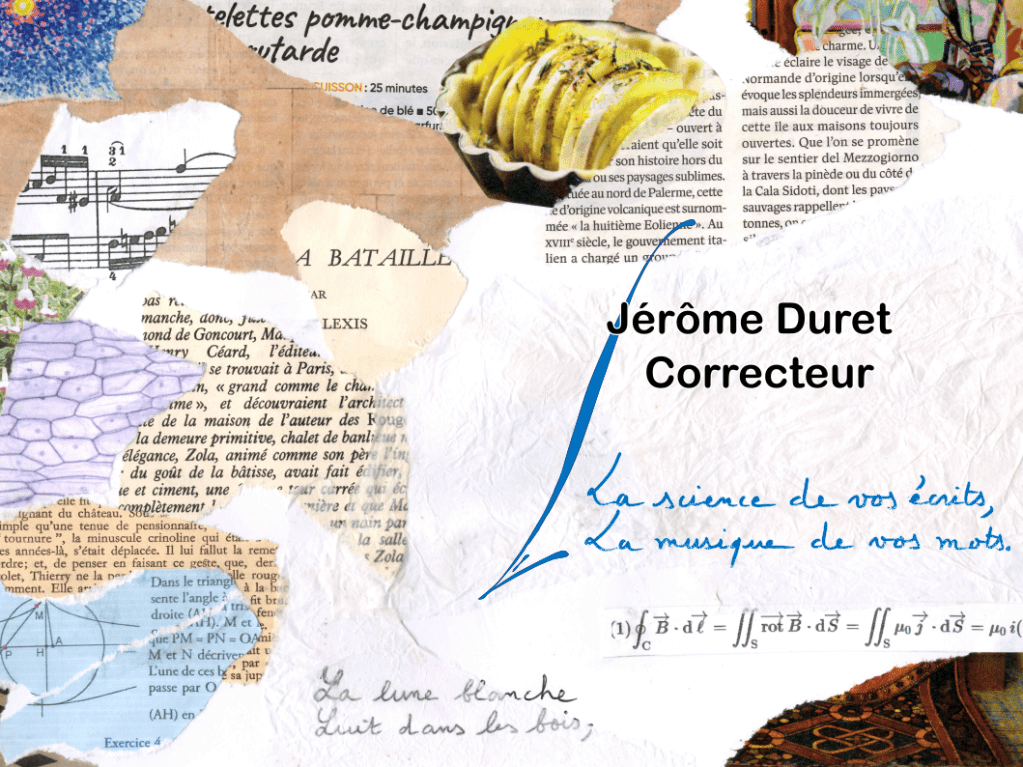 telettes pomme-champign
utarde
CUISSON : 25 minutes
de blé ■ 50
charme. U
éclaire le visage de
Normande d'origine lorsqu'e
évoque les splendeurs immergées,
mais aussi la douceur de vivre de
cette île aux maisons toujours
ouvertes. Que l'on se promène
sur le sentier del Mezzogiorno
à travers la pinède ou du côté d
la Cala Sidoti, dont les pays
sauvages rappellent
tonnes, on
ête du
– ouvert à
raient qu'elle soit
son histoire hors du
ou ses paysages sublimes.
tuée au nord de Palerme, cette
e d'origine volcanique est surnom-
mée « la huitième Eolienne ». Au
XVIIIe siècle, le gouvernement ita-
lien a chargé un group
1 1 3 1
2
4
A BATAILLE
PAR
LEXIS
pas re
manche, donc, jus
mond de Goncourt, Ma
Henry Céard, l'éditeu
il se trouvait à Paris,
n, « grand comme le cha
me », et découvraient l'architect
te de la maison de l'auteur des Roug
la demeure primitive, chalet de banlieue
élégance, Zola, animé comme son père l'in
du goût de la bâtisse, avait fait édifier,
ue et ciment, une tour carrée qui éc
complètement mière et que Ma
un nain par
la salle
s Zola
Jérôme Duret
Correcteur
La science de vos écrits,
La musique de vos mots.
elle fit
ignant du château. Sous
imple qu'une tenue de pensionnaire,
tourniure ", la minuscule crinoline qui éta
es années-là, s'était déplacée. Il lui fallut la reme
rdre; et, de penser en faisant ce geste, que, der
olet, Thierry ne la per lle roug
mment. Elle ar
Dans le triangl
sente l'angle à
droite (AH)
(AH). M et
que PM = PN = OA
M et N décriven
L'une de ces b
passe par O
(AH) en
Exercice 4
M
A
P
H
(1) ∮C B⃗ · dℓ⃗ = ∬S rot⃗ B⃗ · dS⃗ = ∬S μ0 j⃗ · dS⃗ = μ0 i(
La lune blanche
Luit dans les bois;